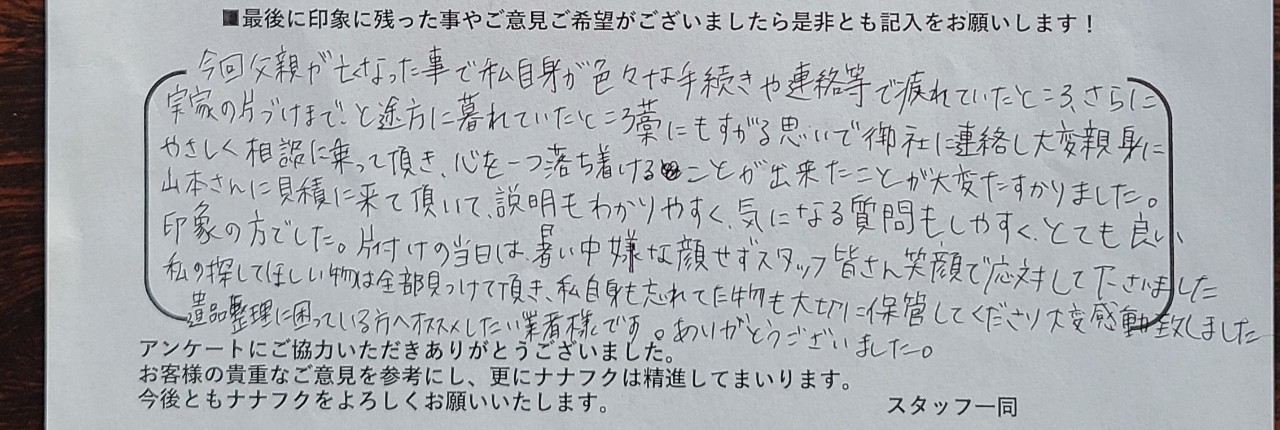 ■最後に印象に残った事やご意見ご希望がございましたら是非とも記入をお願いします！
今回父親が亡くなった事で私自身が色々な手続きや連絡等で疲れていたところ、さらに
実家の片づけまで！と途方に暮れていたところ藁にもすがる思いで御社に連絡し大変親身に
やさしく相談に乗って頂き、心を一つ落ち着けることが出来たことが大変たすかりました。
山本さんに見積に来て頂いて、説明もわかりやすく、気になる質問もしやすく、とても良い
印象の方でした。片付けの当日は、暑い中嫌な顔せずスタッフ皆さん笑顔で応対して下さいました
私の探してほしい物は全部見つけて頂き、私自身も忘れてた物も大切に保管してくださり大変感動致しました
遺品整理に困っている方へオススメしたい業者様です。ありがとうございました。
アンケートにご協力いただきありがとうございました。
お客様の貴重なご意見を参考にし、更にナナフクは精進してまいります。
今後ともナナフクをよろしくお願いいたします。
スタッフ一同